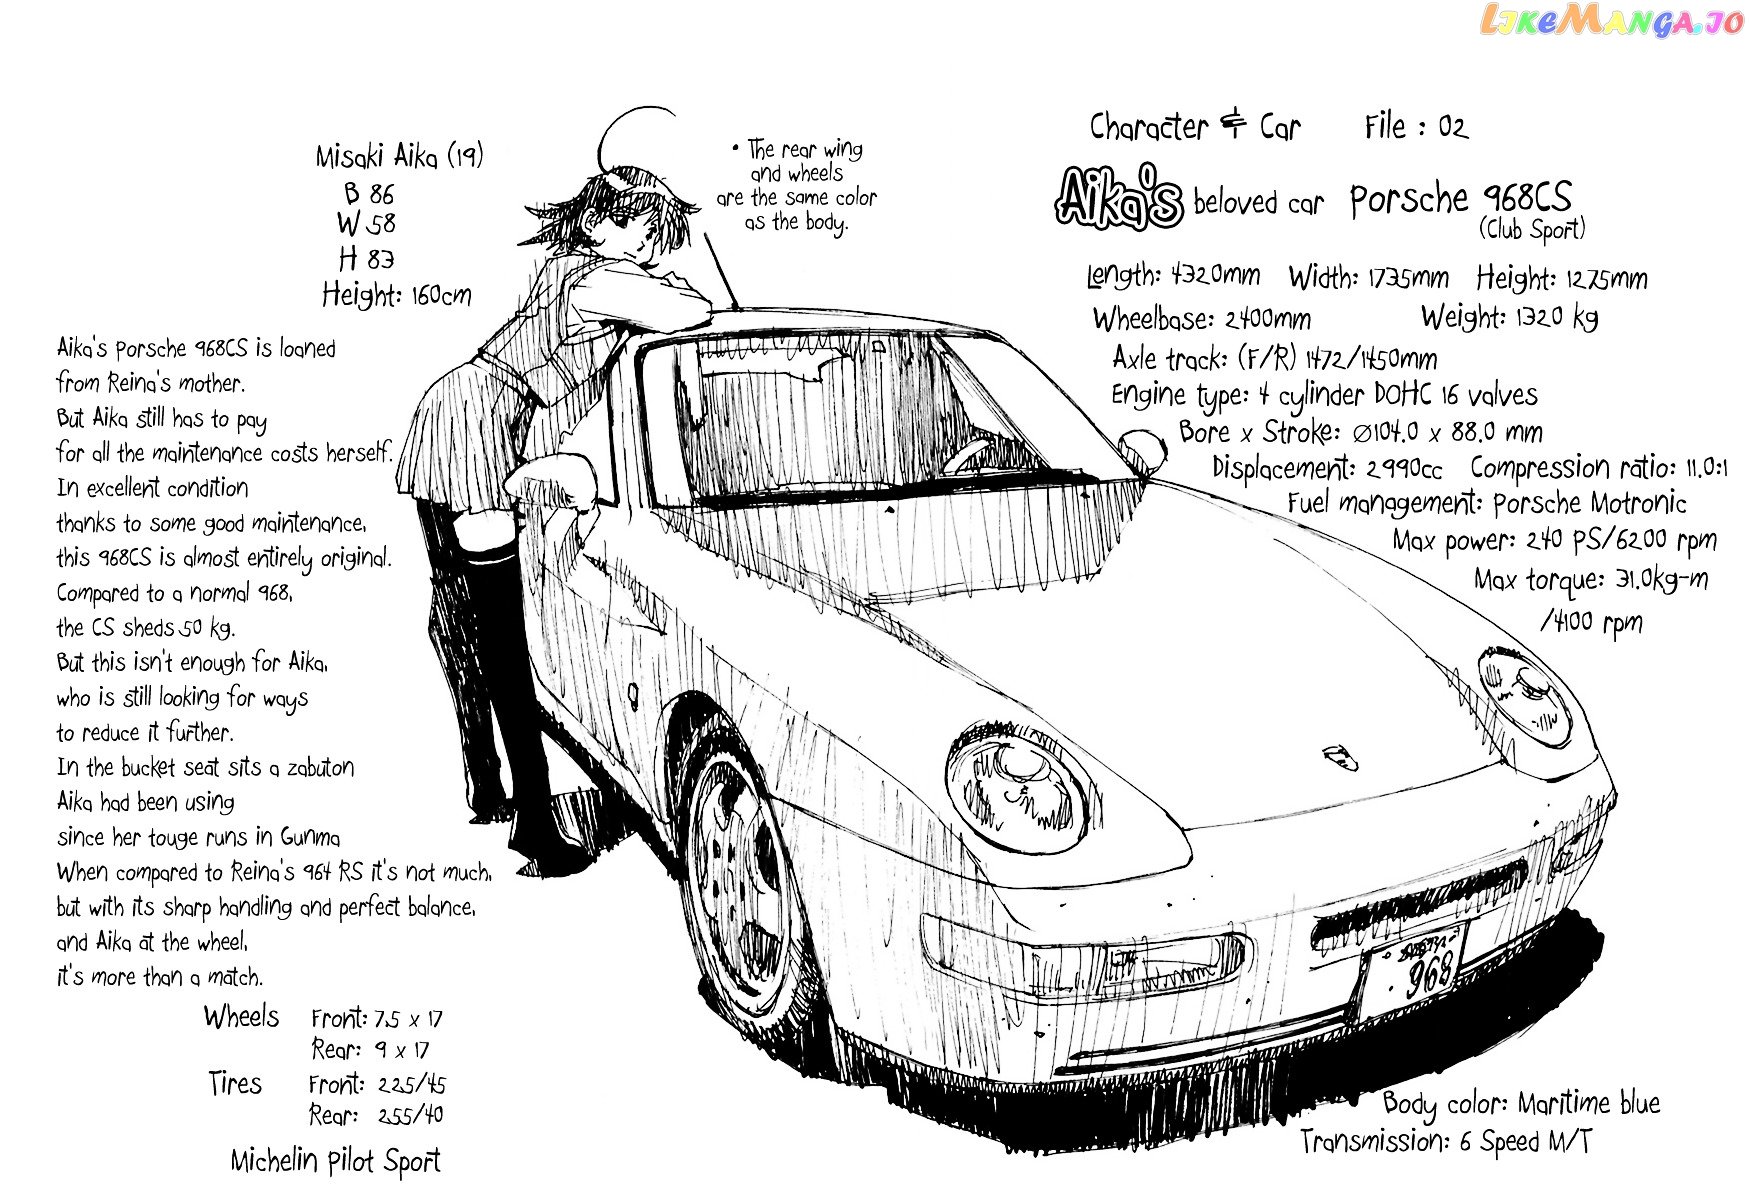 LIKEMANGA.IO
Character & Car File : 02
Aika's beloved car Porsche 968CS
(Club Sport)
Length: 4320mm Width: 1735mm Height: 1275mm
Wheelbase: 2400mm Weight: 1320 kg
Axle track: (F/R) 1472/1450mm
Engine type: 4 cylinder DOHC 16 valves
Bore x Stroke: ∅104.0 x 88.0 mm
Displacement: 2990cc Compression ratio: 11.0:1
Fuel management: Porsche Motronic
Max power: 240 PS/6200 rpm
Max torque: 31.0kg-m
/4100 rpm
Misaki Aika (19)
B 86
W 58
H 83
Height: 160cm
• The rear wing
and wheels
are the same color
as the body.
Aika's Porsche 968CS is loaned
from Reina's mother.
But Aika still has to pay
for all the maintenance costs herself.
In excellent condition
thanks to some good maintenance,
this 968CS is almost entirely original.
Compared to a normal 968,
the CS sheds 50 kg.
But this isn't enough for Aika,
who is still looking for ways
to reduce it further.
In the bucket seat sits a zabuton
Aika had been using
since her touge runs in Gunma
When compared to Reina's 964 RS it's not much,
but with its sharp handling and perfect balance,
and Aika at the wheel,
it's more than a match.
Wheels Front: 7.5 x 17
Rear: 9 x 17
Tires Front: 225/45
Rear: 255/40
Michelin Pilot Sport
968
Body color: Maritime blue
Transmission: 6 Speed M/T